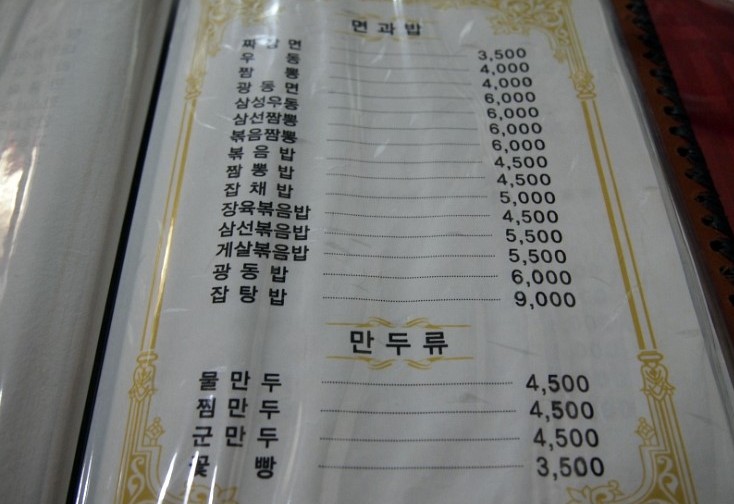 면과밥
짜장면 3,500
우동 4,000
짬뽕 4,000
광동면 6,000
삼성우동 6,000
삼선짬뽕 6,000
볶음짬뽕 6,000
볶음밥 4,500
짬뽕밥 4,500
잡채밥 5,000
장육볶음밥 4,500
삼선볶음밥 5,500
게살볶음밥 5,500
광동밥 6,000
잡탕밥 9,000
만두류
물만두 4,500
찜만두 4,500
군만두 4,500
꽃빵 3,500